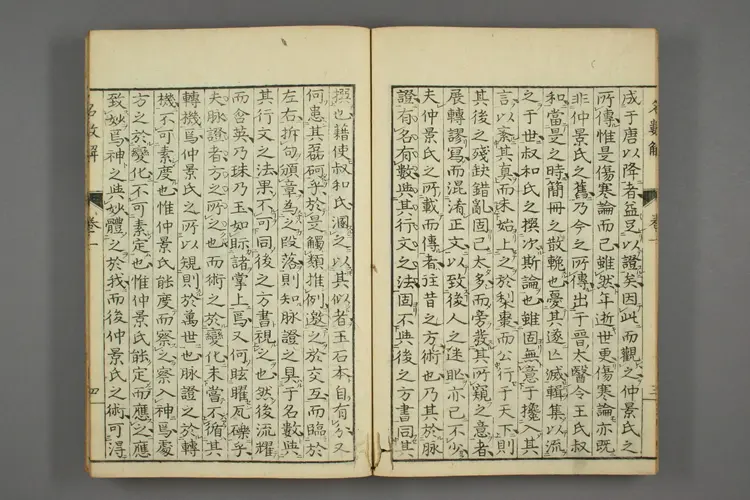 成于唐以降者益足以證矣因此而觀之仲景氏之
所傳惟是傷寒論而已雖然年逝世更傷寒論亦既
非仲景氏之舊乃今之所傳出于晉太醫令王氏叔
和當是之時簡冊之散軼也憂其遂亡滅輯集以流
之于世叔和氏之撰次斯論也雖固無意于攙入其
言以紊其真而未始上之於梨棗而公行于天下則
其後之殘缺錯亂固已太多而旁發其所窺之意者
展轉謬寫而混淆正文以致後人之迷眇亦已不少
夫仲景氏之所載而傳者往昔之方術也乃其於脉
證有名有數與其行文之法固不與後之方書同其
撰也藉使叔和氏溷之以其似者玉石本自有分又
何患其磊砢乎於是觸類推例邀之於交互而臨於
左右拆句頒章為之段落則知脉證之具于名數與
其行文之法果不可同後之方書視之也然後流耀
而含英乃珠乃玉如眎諸掌上焉又何眩矅瓦礫乎
夫脉證者方之所之也而術之於變化未嘗不循其
轉機焉仲景氏之所以規則於萬世也脉證之於轉
機不可素度也惟仲景氏能度而察之察入神焉處
方之於變化不可素定也惟仲景氏能定而應之應
致妙焉神之與妙體之於我而後仲景氏之術可得
名數解 卷一 三
名數解 卷一 四